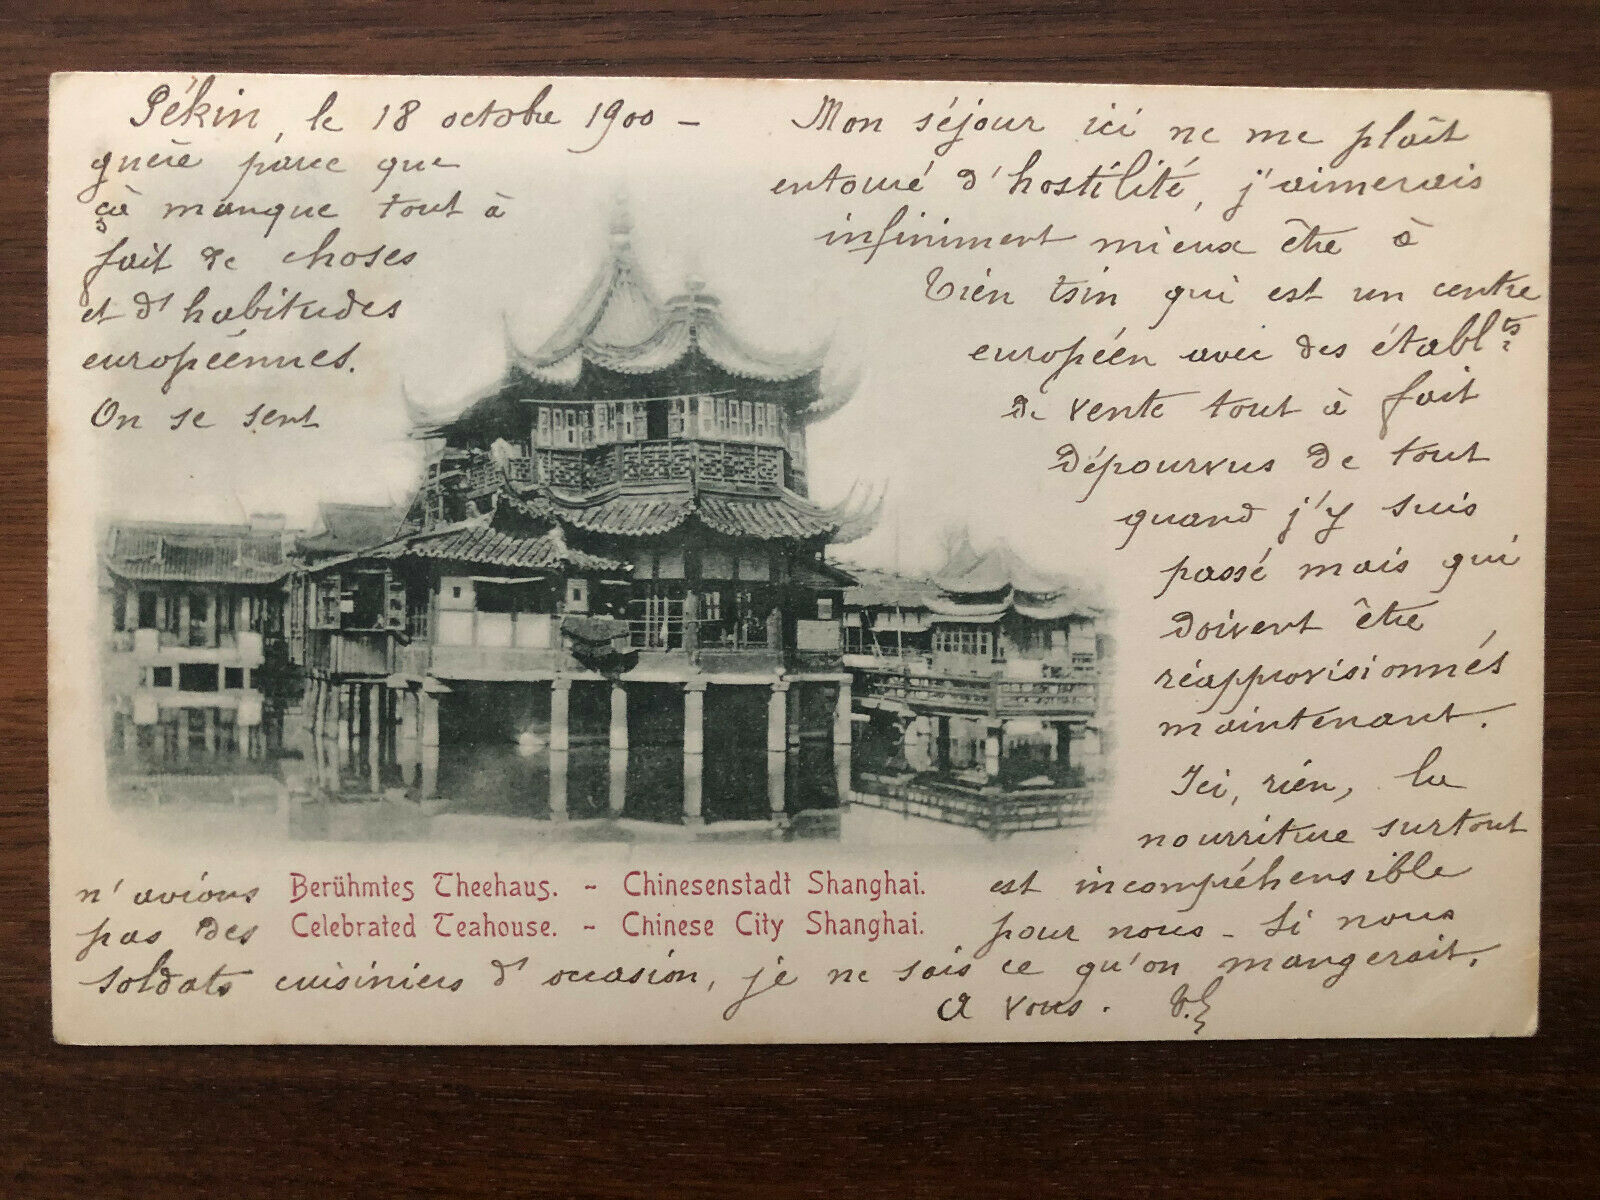 Pékin, le 18 octobre 1900 -
Mon séjour ici ne me plaît
guère parce que
çà manque tout à
fait de choses
et d'habitudes
européennes.
On se sent
entouré d'hostilité, j'aimerais
infiniment mieux être à
Tién tsin qui est un centre
européen avec des établts
de vente tout à fait
dépourvus de tout
quand j'y suis
passé mais qui
doivent être
réapprovisionnés
maintenant.
Ici, rién, la
nourriture surtout
est incompréhensible
pour nous - Si nous
n'avions
pas des
soldats cuisiniers d'occasion, je ne sais ce qu'on mangerait.
A vous.
Berühmtes Theehaus. - Chinesenstadt Shanghai.
Celebrated Teahouse. - Chinese City Shanghai.